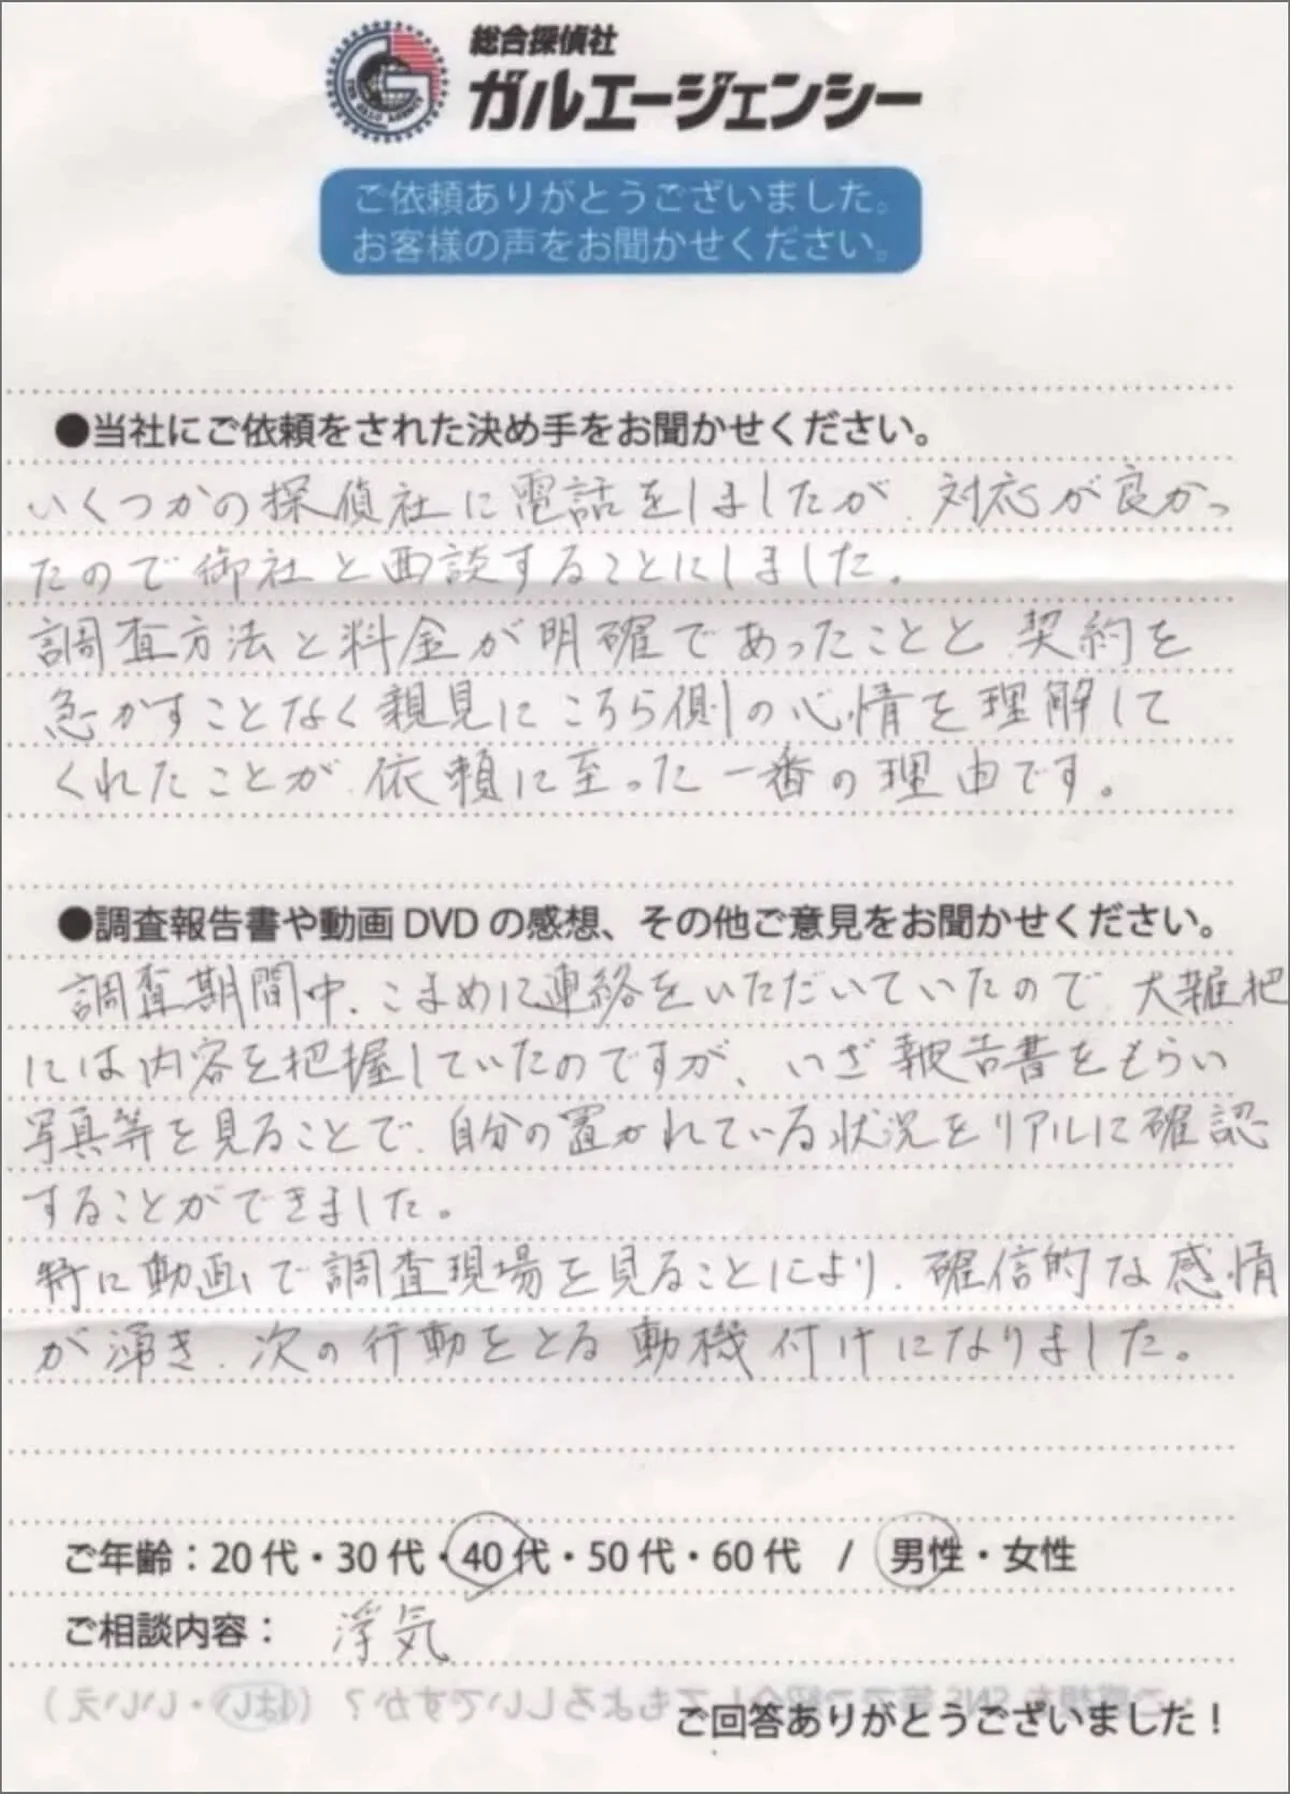 総合探偵社
ガルエージェンシー
ご依頼ありがとうございました。
お客様の声をお聞かせください。
●当社にご依頼をされた決め手をお聞かせください。
いくつかの探偵社に電話をしましたが、対応が良かっ
たので御社と面談することにしました。
調査方法と料金が明確であったことと契約を
急かすことなく親見にこちら側の心情を理解して
くれたことが、依頼に至った一番の理由です。
●調査報告書や動画DVDの感想、その他ご意見をお聞かせください。
調査期間中、こまめに連絡をいただいていたので、大雑把
には内容を把握していたのですが、いざ報告書をもらい
写真等を見ることで、自分の置かれている状況をリアルに確認
することができました。
特に動画で調査現場を見ることにより、確信的な感情
が湧き、次の行動をとる動機付けになりました。
ご年齢:20代・30代・40代・50代・60代 / 男性・女性
ご相談内容: 浮気
ご感想を SNS 等でご紹介してもよろしいですか?(はい・いいえ)
ご回答ありがとうございました!